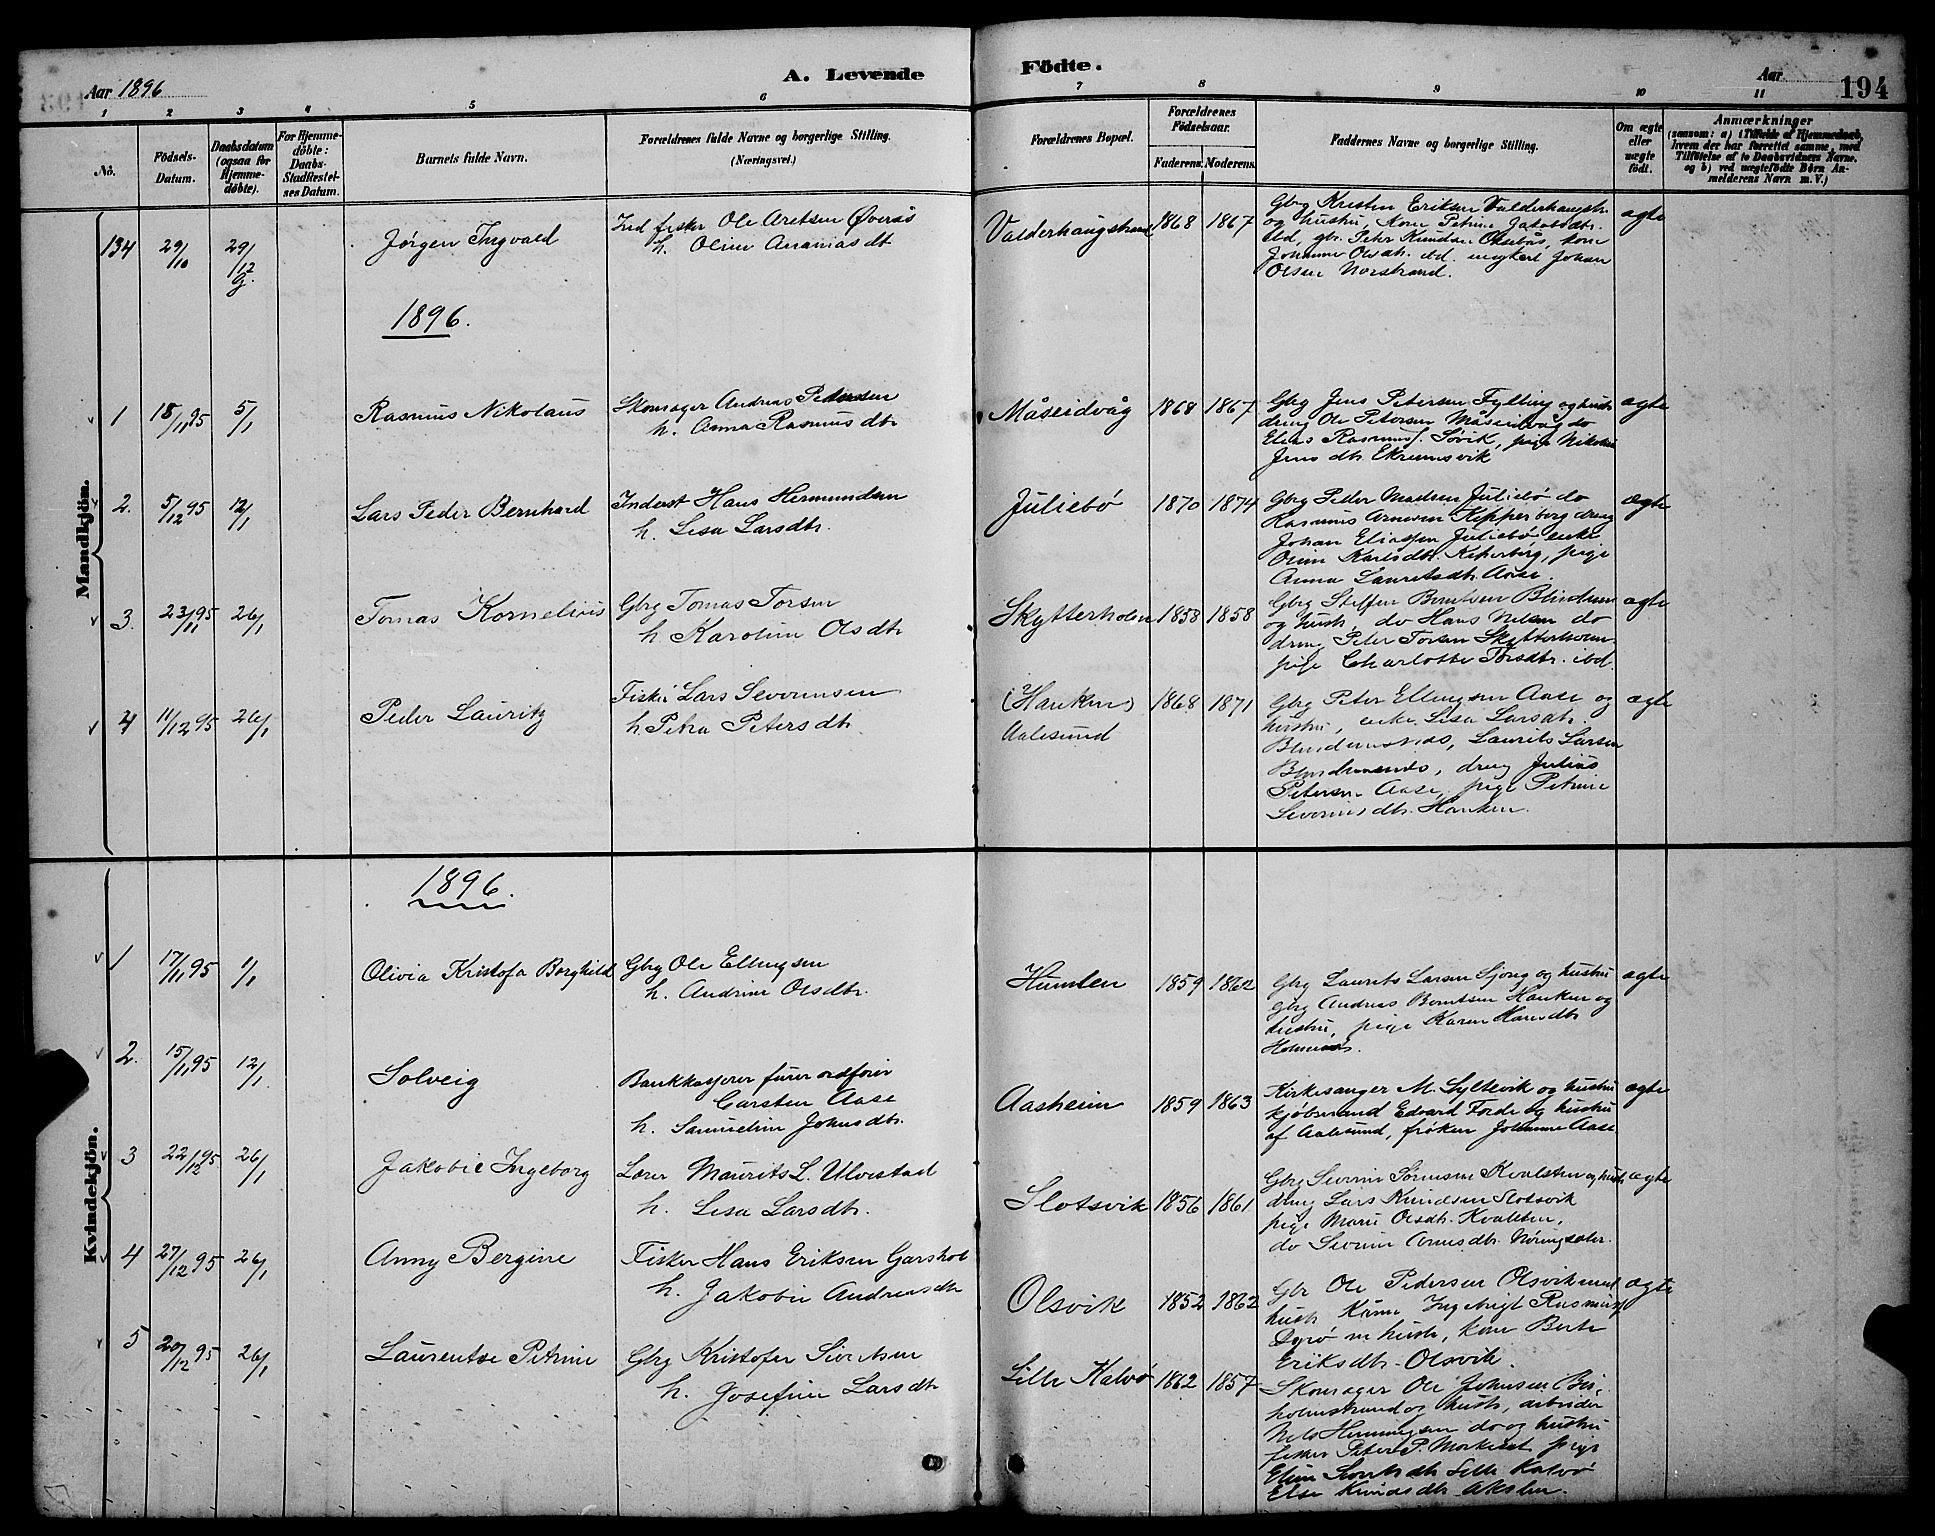 Aar 1896
A. Levende Födte.
Aar
194
1 2 3 4 5 6 7 8 9 10 11
No.
Födsels-Datum.
Daabsdatum (ogsaa for Hjemmedöbte).
For Hjemmedöbte: Daabs-Stadfæstelses Datum.
Barnets fulde Navn.
Forældrenes fulde Navne og borgerlige Stilling. (Næringsvei.)
Forældrenes Bopæl.
Forældrenes Födselsaar.
Faderens. Moderens.
Faddernes Navne og borgerlige Stilling.
Om ægte eller uægte født.
Anmærkninger
(saasom: a) i Tilfælde af Hjemmedaab,
hvem der har forrettet samme, med
Tilföielse af to Daabsvidners Navne,
og b) ved uægtefödte Börn An-
melderens Navn m. V.)
Mandkjön.
134 29/10 29/12 g. Jørgen Ingvald
Ind fisker Ole Aretsen Øverås
h. Oline Ananiasdt
Valderhaugstrand 1868 1867
Gbrg Kristen Eriksen Valderhaugstr.
og hustru, Kone Petrine Jakobsdtr.
ibd, gbr. Peter Knudsen Oksebås, kone
Johanne Olsdtr. ibd. ungkarl Johan
Olsen Norstrand.
ægte
1896.
1 18/11 95 5/1 Rasmus Nikolaus
Skomager Andreas Pedersen
h. Anna Rasmusdtr
Måseidvåg 1868 1867
Gbrg Jens Petersen Fylling og hustr
dreng Ole Petersen Måseidvåg, do
Elias Rasmuss. Søvik, pige Nikoline
Jensdtr. Ekremsvik
ægte
2. 5/12 95 12/1 Lars Peder Bernhard
Inderst Hans Hermundsen
h. Lisa Larsdtr.
Juliebø 1870 1874
Gbrg Peder Madsen Juliebø do
Rasmus Arnesen Kipperberg dreng
Johan Eliassen Juliebø enke
Oline Karlsdtr. Kipperberg, pige
Anna Lauritsdtr. Aase.
ægte
3. 23/11 95 26/1 Tomas Kornelius
Gbrg Tomas Torsen
h. Karoline Olsdtr
Skytterholm 1858 1858
Gbrg Steffen Berntsen Blindeim
og hustr, do Hans Nilsen do
dreng Peter Torsen Skytterholm
pige Charlotte Torsdtr. ibd.
ægte
4 11/12 95 26/1 Peder Lauritz
Fisker Lars Severinsen
h. Petra Petersdtr.
(Hanken) Aalesund 1868 1871
Gbrg Peter Ellingsen Aase og
hustru, enke Lisa Larsdtr.
Blindemsnes, Laurits Larsen
Blindemsnes, dreng Julius
Petersen Aase, pige Petrine
Severinsdtr. Hanken.
ægte
Kvindekjön.
1896.
1 17/11 95 1/1 Olivia Kristofa Borghild
Gbrg Ole Ellingsen
h. Andrine Olsdtr.
Humlen 1859 1862
Gbrg Laurits Larsen Sjong og hustru
Gbrg Andreas Berntsen Hanken og
hustru, pige Karen Hansdtr
ægte
2. 15/11 95 12/1 Solveig
Bankkasjerer furer ordfører
Carsten Aase
h. Samueline Johnsdtr.
Aasheim 1859 1863
Kirkesanger M. Syltevik og hustru
kjøbmand Edvard Forde og hustru
af Aalesund, frøken Johanne Aase
ægte
3 22/12 95 26/1 Jakobie Ingeborg
Lærer Maurits L. Ulvestad
h. Lisa Larsdtr.
Slotsvik 1856 1861
Gbrg Severin Sørensen Kvalsten og hustr
dreng Lars Knudsen Slotsvik
pige Marie Olsdtr. Kvalsten,
do Sevrine Arnesdtr. Nøringsæter.
ægte
4 27/12 95 26/1 Anny Bergine
Fisker Hans Eriksen Garshol
h. Jakobie Andreasdtr
Olsvik 1852 1862
Gbr Ole Pedersen Olsvik med
hustr. Kårne Ingebrigt Rasmuss
Dyrø m hustr, kone Berte
Eriksdtr. Olsvik.
ægte
5 20/12 95 26/1 Laurentse Petrine
Gbrg Kristofer Sivertsen
h. Josefine Larsdtr
Lille Kalvø 1862 1857
Skomager Ole Johnsen
holmstrand og hustr, arbeider
Nils Henningsen do og hustru
fisker Peter P. Morkeset pige
Eline Sivertsdtr Lille Kalvø
Else Knudsdtr. Akslen.